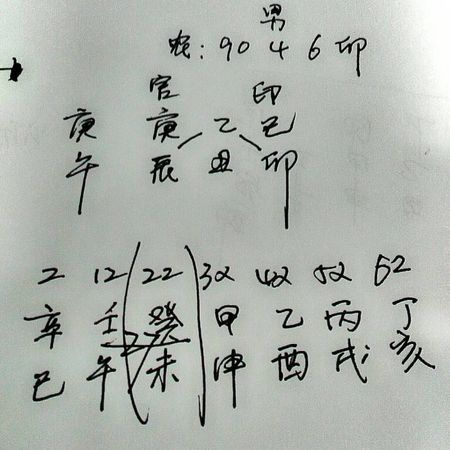 男
农: 90 4 6 卯
官 印
庚 庚 乙 己
午 辰 丑 卯
2 12 (22) 32 42 52 62
辛 壬 癸 甲 乙 丙 丁
巳 午 未 申 酉 戌 亥